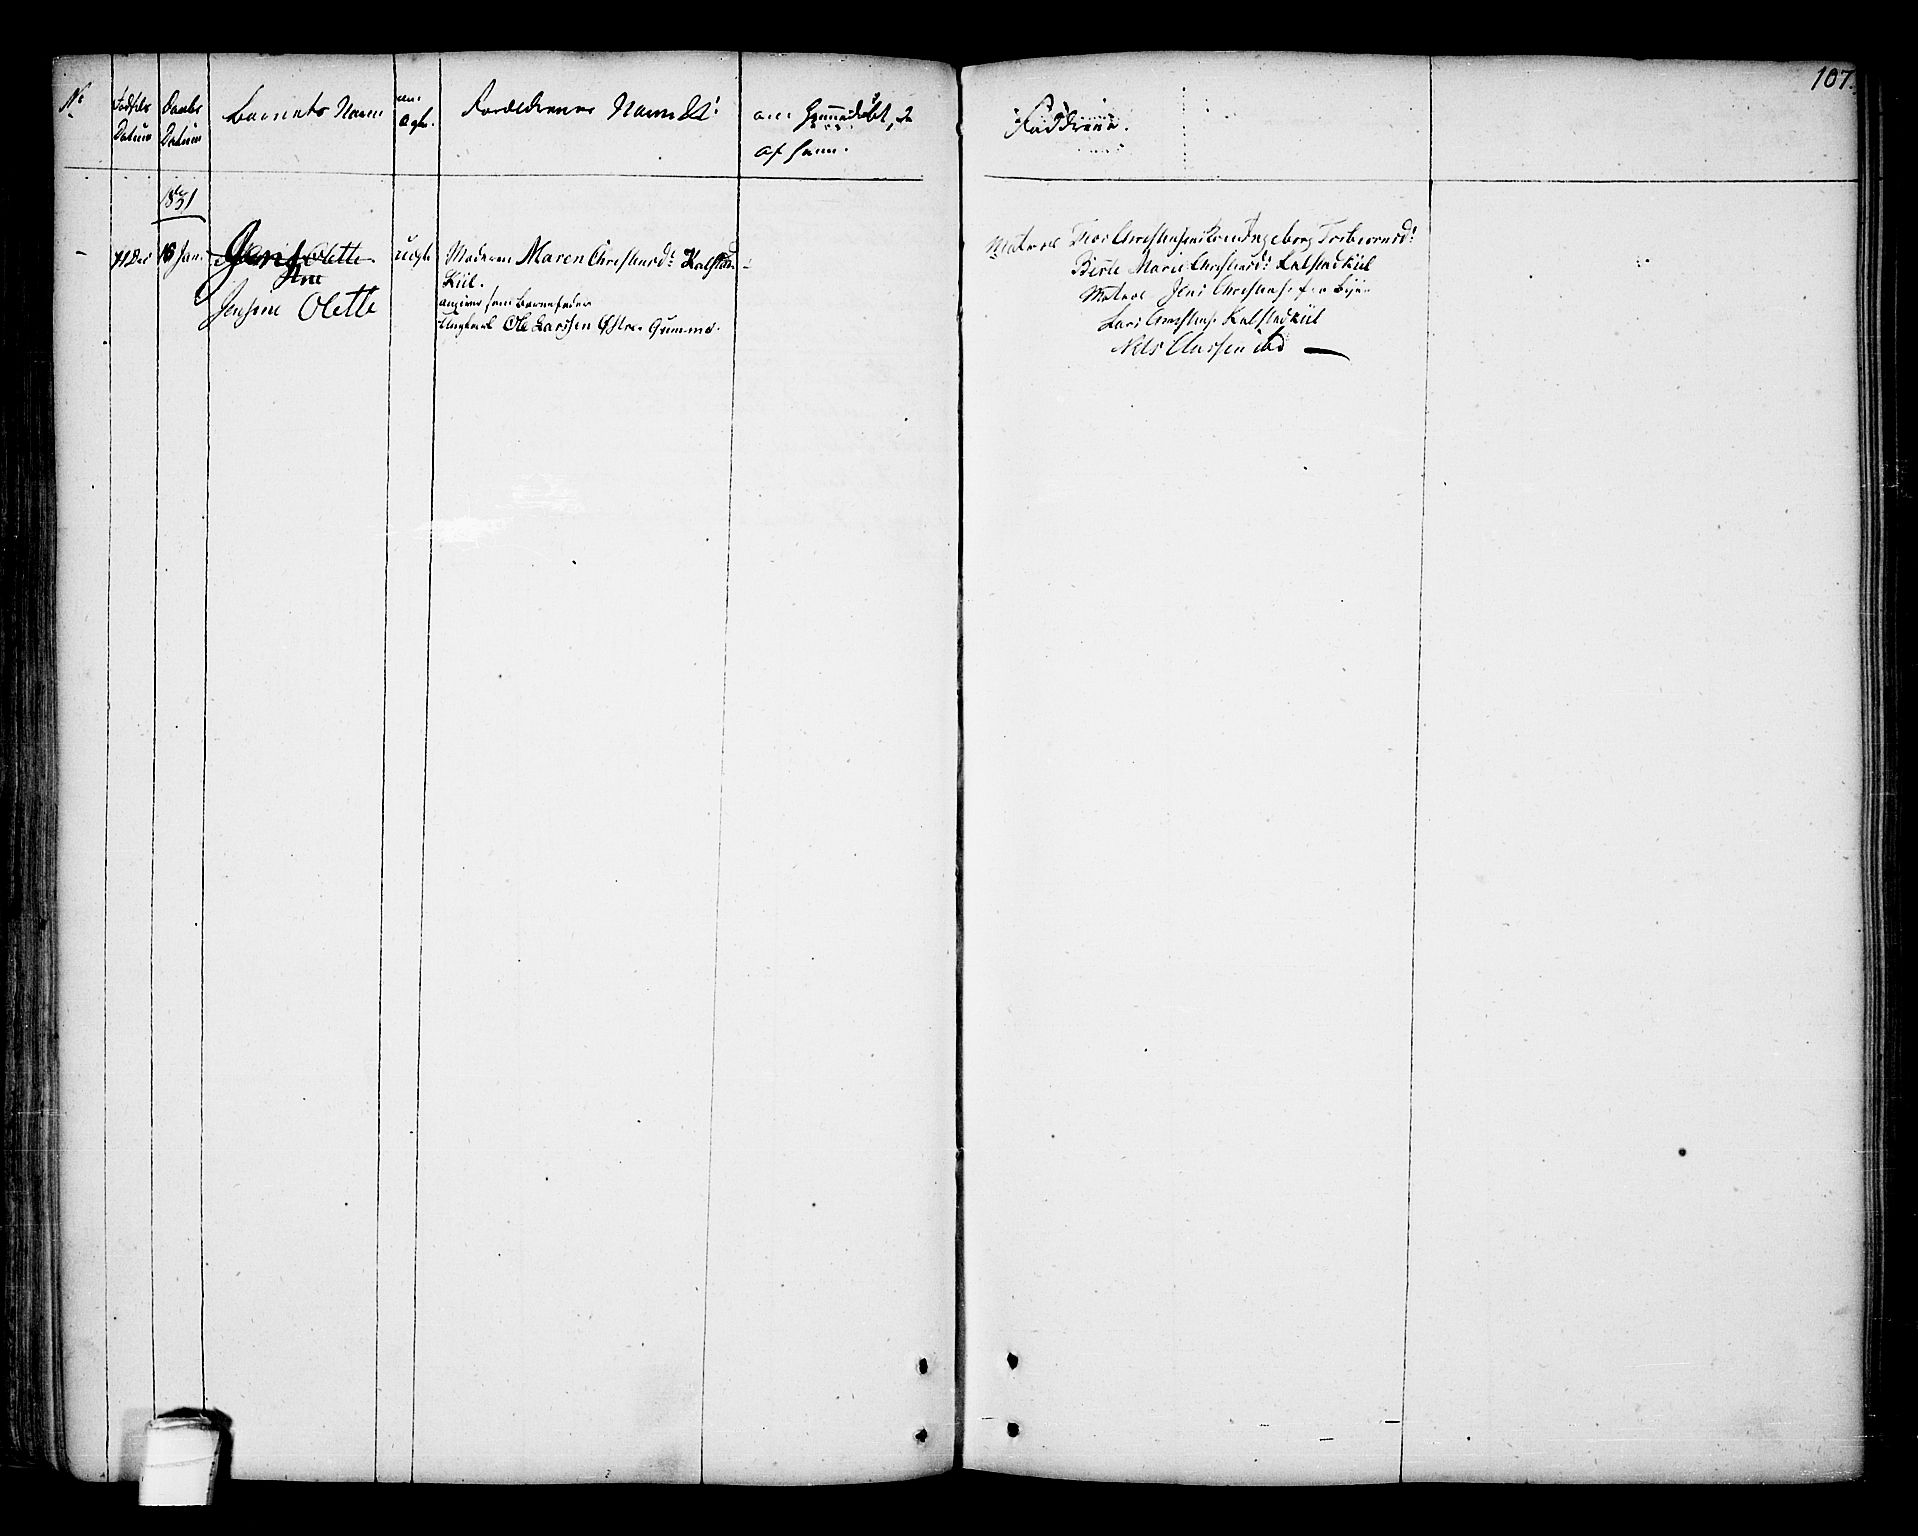 107.
No
Fødsels Datum
Daabs Datum
Barnets Navn
om Ægte.
Forældrenes Navn &c:
om hjemmedøbt, &
af hvem.
Faddrene.
1831
- 11 Dec 16 Jan. Olette
Jensine Olette
uægte
Moderen Maren Christensd: Kalstad
Kiil.
angiver som Barnefader
Ungkarl Ole Larssen Østre Grumma.
-
Matros Christensens Kone Ingeborg Torbiornsd:
Berte Marie Christensd: Kalstadkiil
Matros Jens Christens: fra Bÿe
Lars Christens: Kalstadkiil
Niels Clausen ibd —